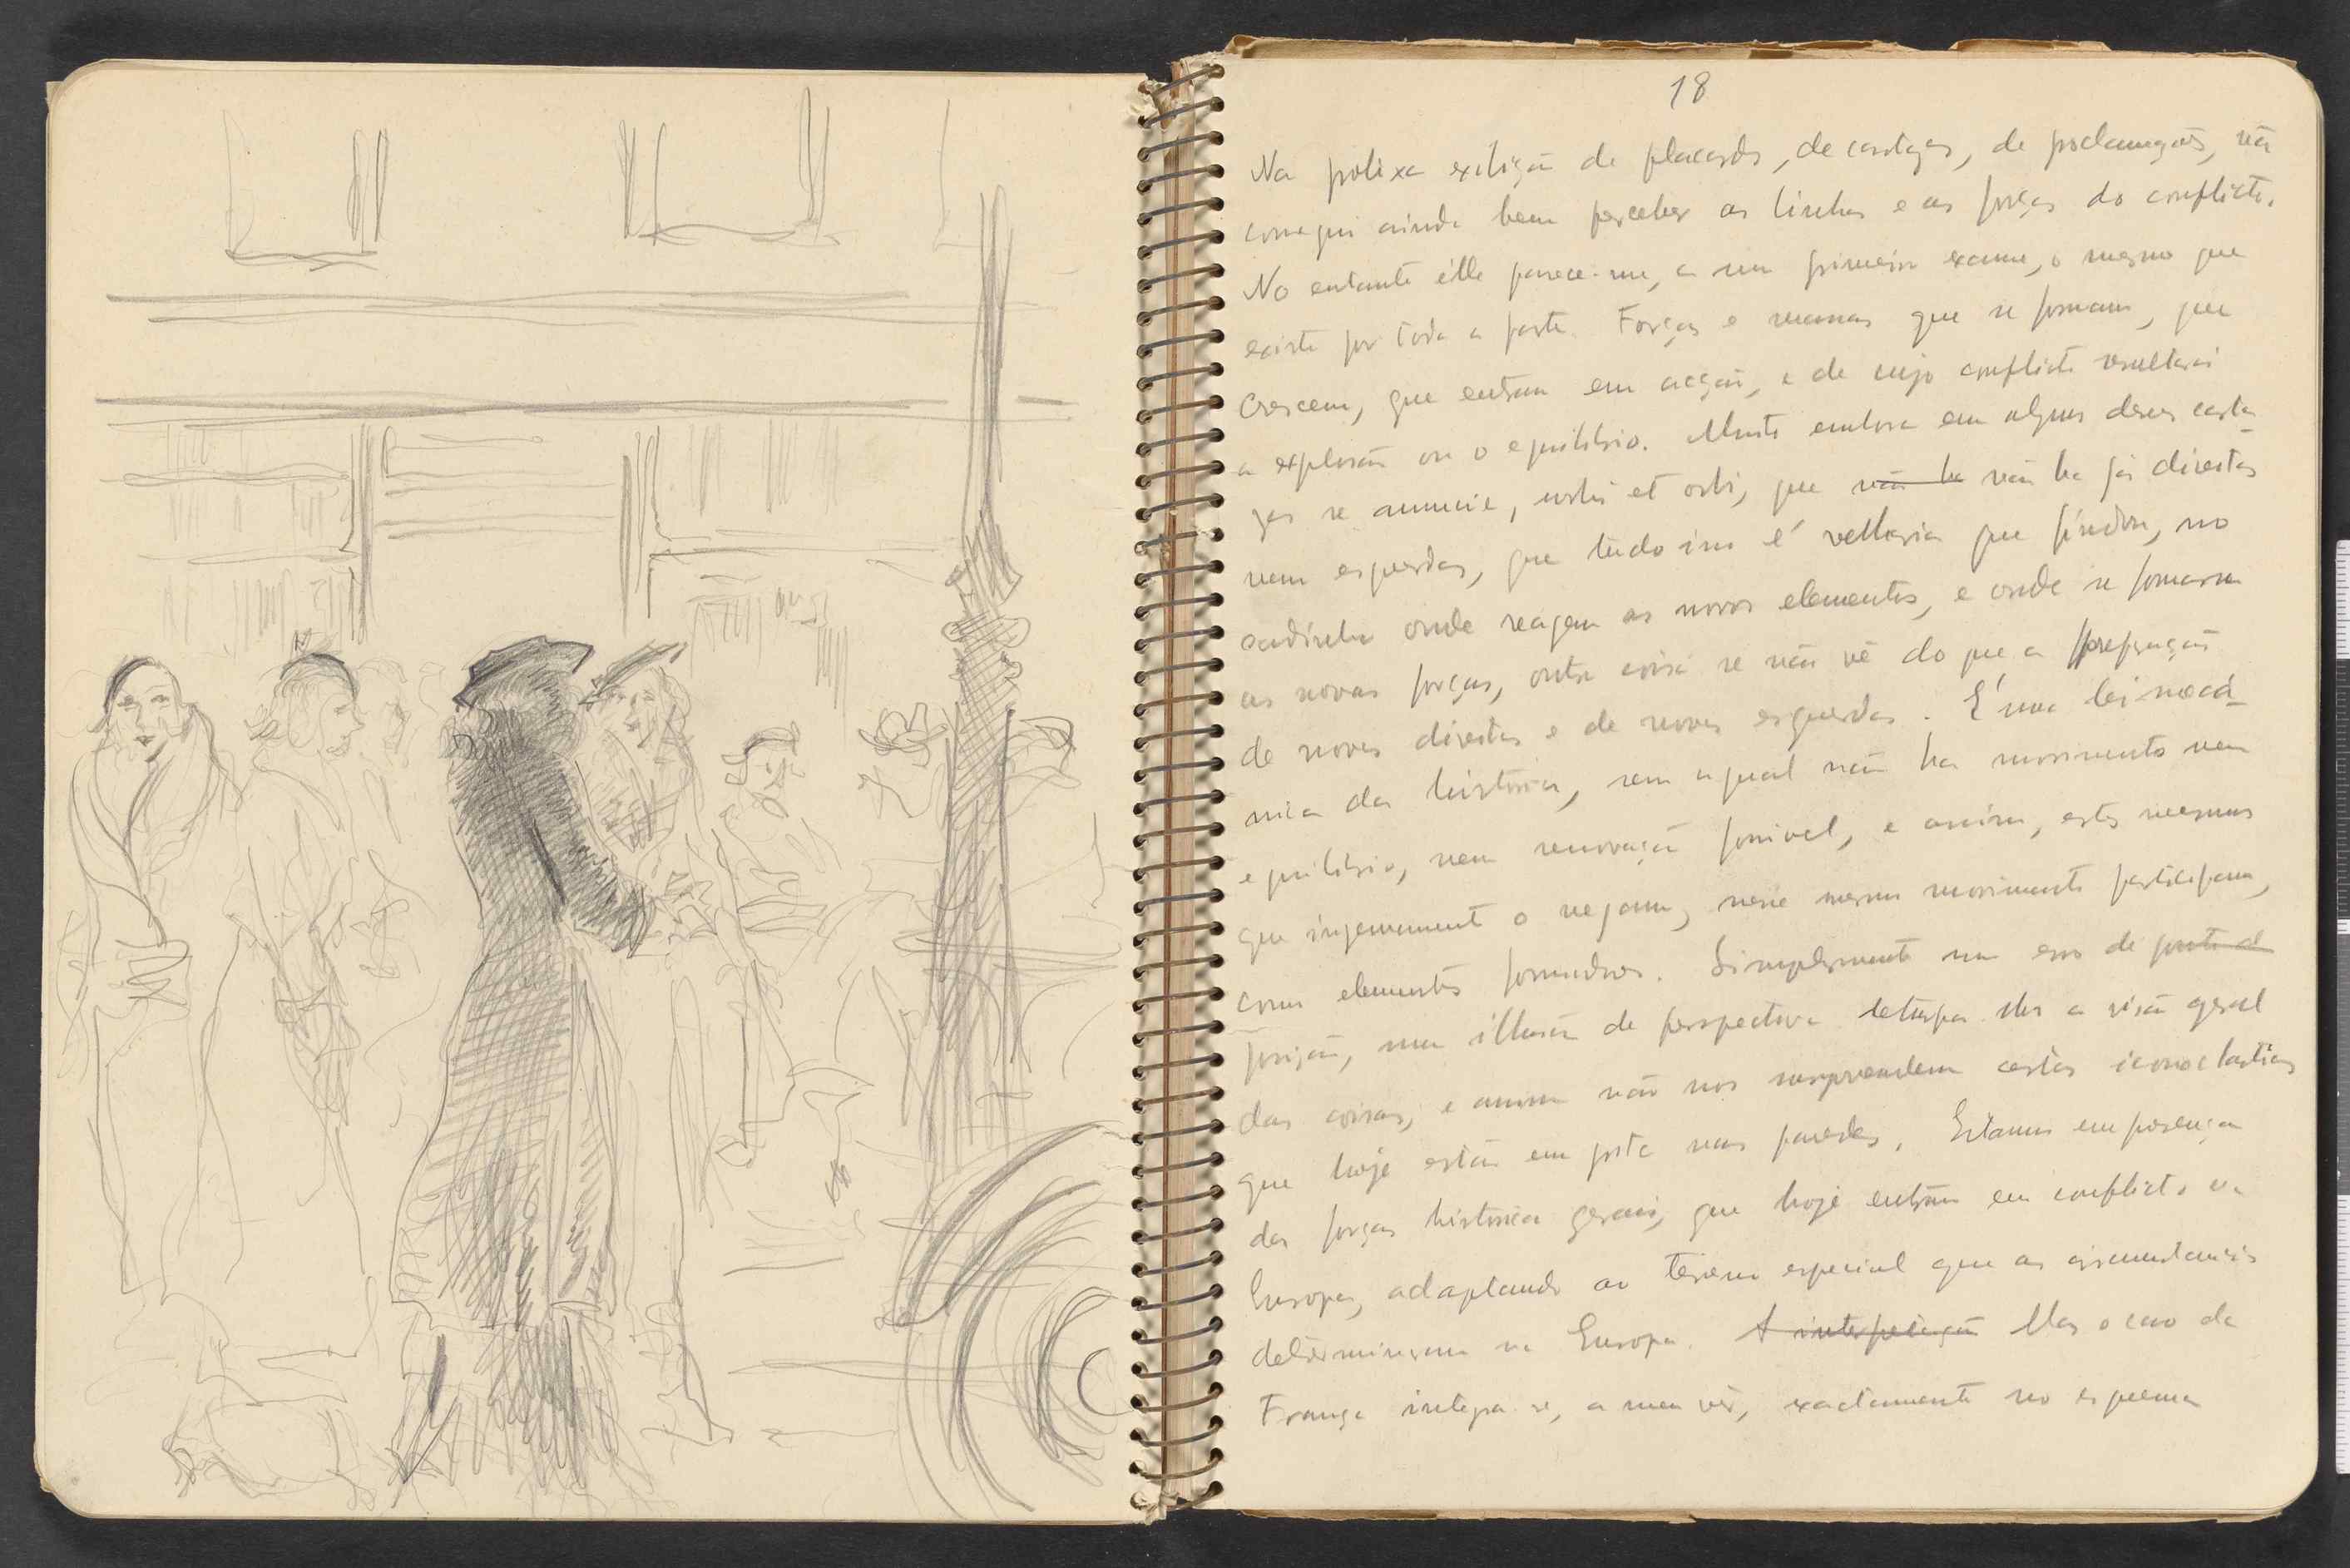 18
Na prolixa exibição de placards, de cartazes, de proclamações, não
consegui ainda bem perceber as linhas e as forças do conflicto.
No entanto êlle parece-me, a um primeiro exame, o mesmo que
existe por toda a parte. Forças e massas que se formam, que
crescem, que entram em acção, e de cujo conflicto resultará
a explosão ou o equilibrio. Muito embora em alguns desses carta-
zes se annuncie, urbi et orbi, que não ha não ha já direitas
nem esquerdas, que tudo isso é velharia que findou, no
cadinho onde reagem os novos elementos, e onde se formaram
as novas forças, outra coisa se não vê do que a preparação
de novas direitas e de novas esquerdas. É uma lei mecâ-
nica da história, sem a qual não ha movimento nem
equilibrio, nem renovação possivel, e assim, estes mesmos
que ingenuamente o negam, nesse mesmo movimento participam,
como elementos formadores. Simplesmente um erro de ponto de
posição, uma illusão de perspectiva deturpa-lhes a visão geral
das coisas, e assim não nos surprendem certas iconoclastias
que hoje estão em pósta nas paredes. Estamos em presença
das forças historica gerais, que hoje entram em conflicto na
Europa, adaptando ao terreno especial que as circumstancias
determinaram na Europa. A interpretação Mas o caso da
França integra-se, a meu vêr, exactamente no esquema